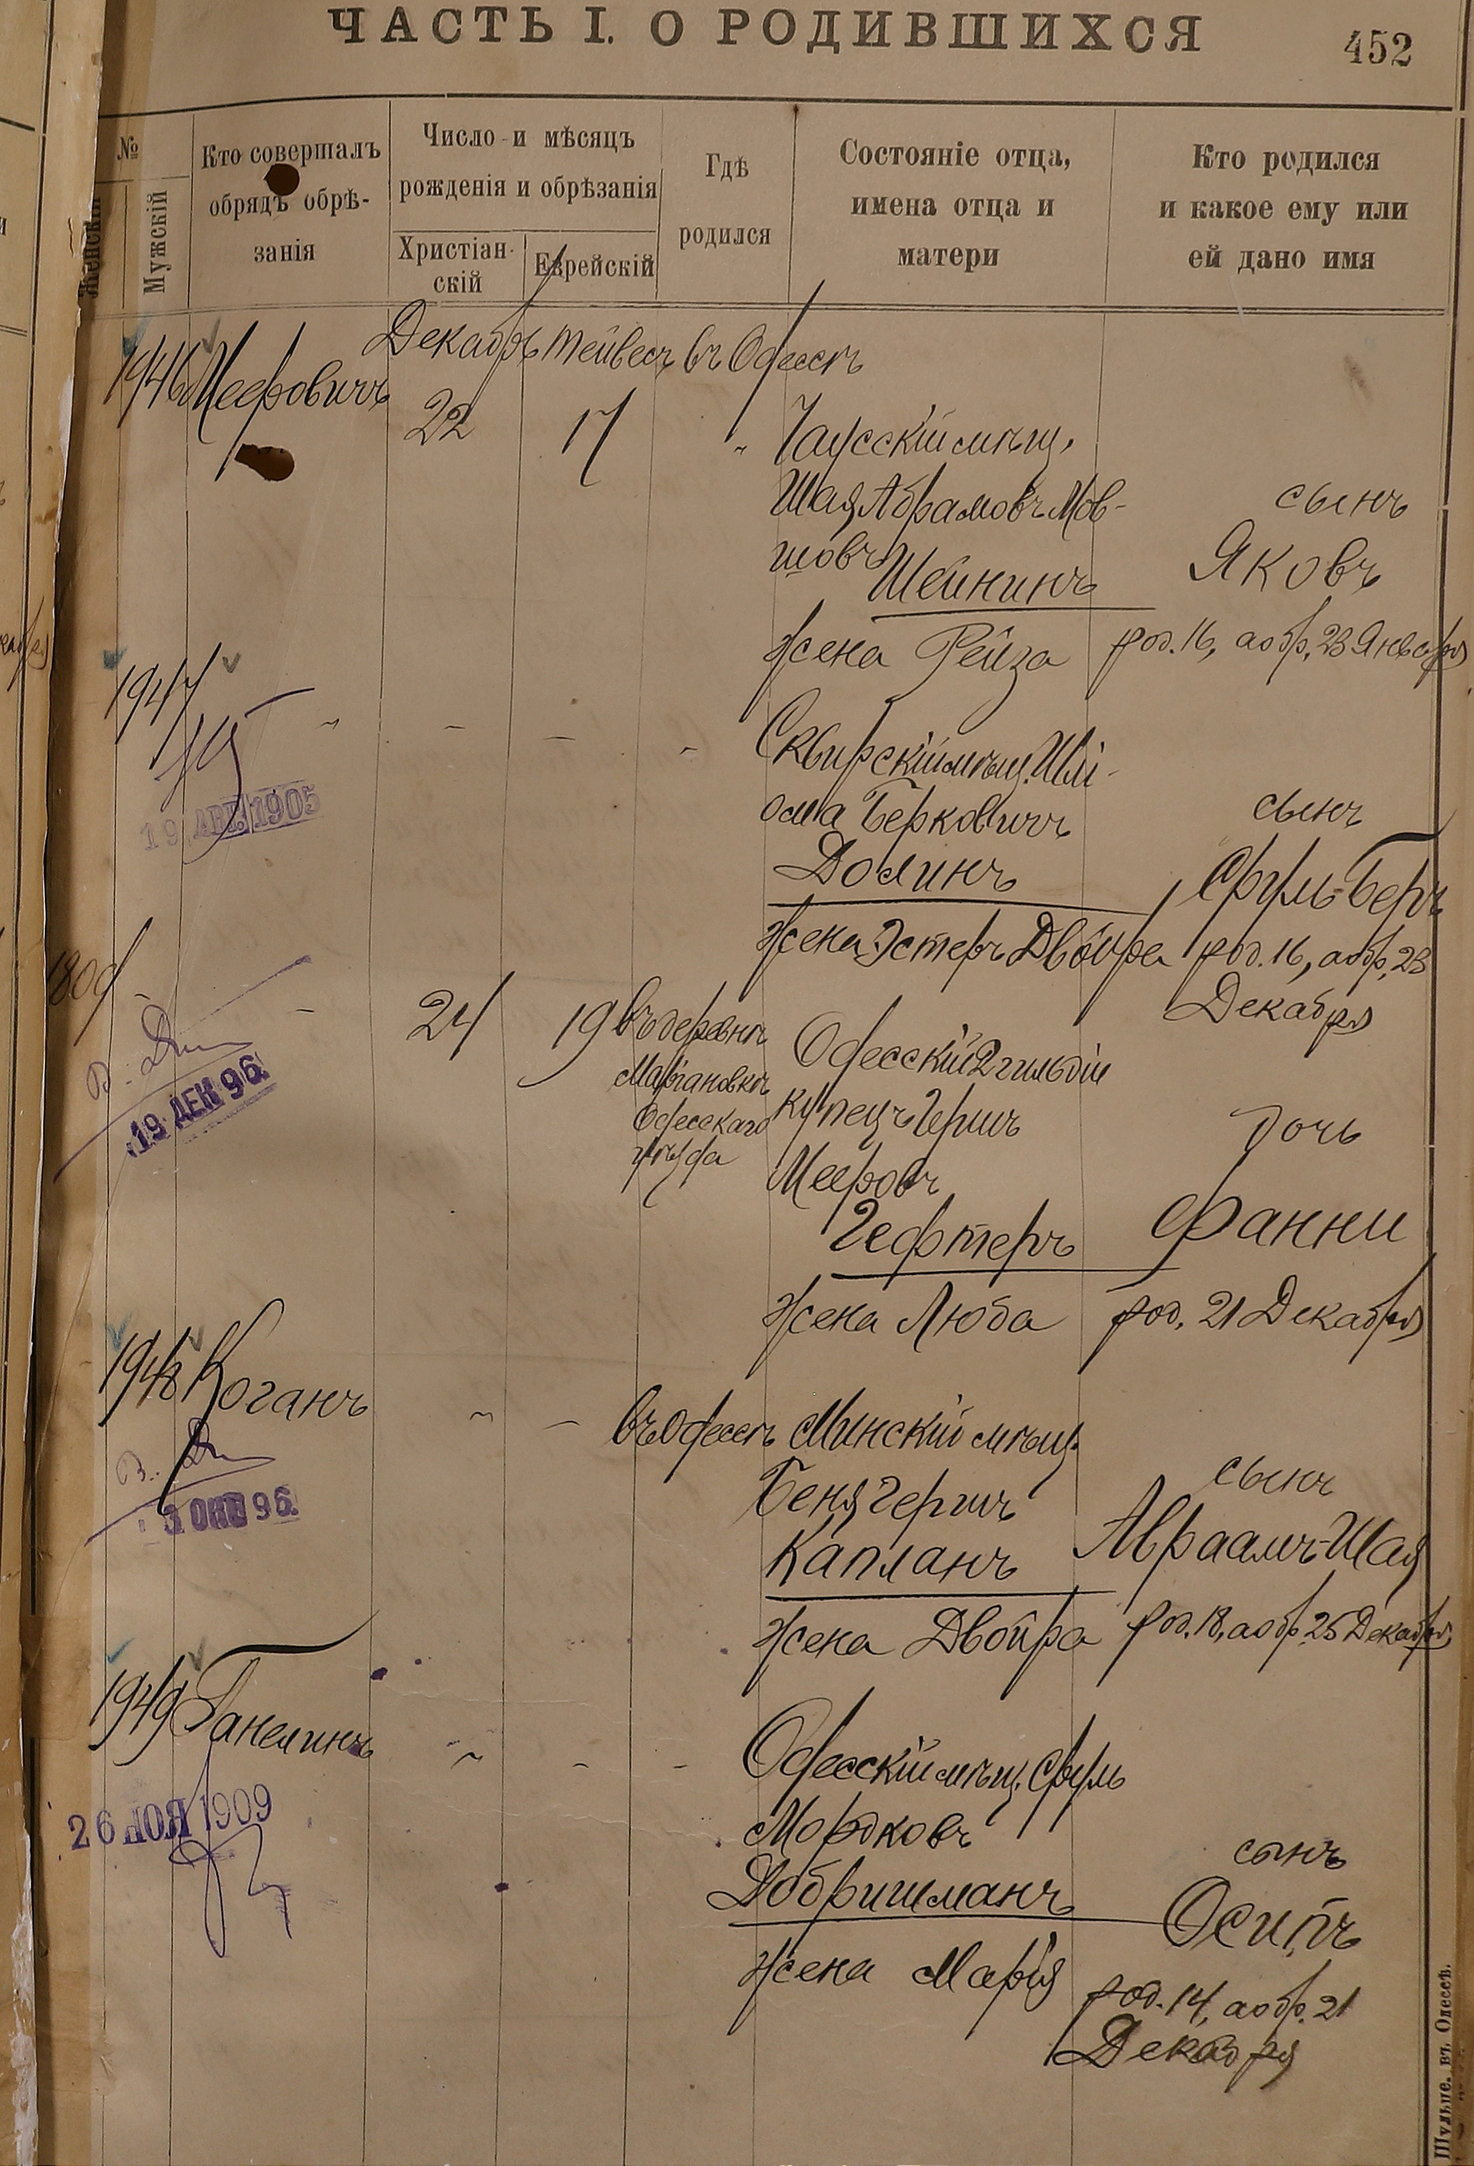 ЧАСТЬ I. О РОДИВШИХСЯ
452
№
Женскій
Мужскій
Кто совершалъ
обрядъ обрѣ-
занія
Число и мѣсяцъ
рожденія и обрѣзанія
Христіан-
скій
Еврейскій
Гдѣ
родился
Состояніе отца,
имена отца и
матери
Кто родился
и какое ему или
ей дано имя
Декабрь Тейвесъ въ Одессѣ
1946 Мееровичъ
22 17 " Чаусскій мѣщ.
Шая Абрамовъ Мов-
шовъ
Шейнинъ
жена Рейза
сынъ
Яковъ
род. 16, а обр. 23 Января
1947
19 АВГ. 1905
Сквирскій мѣщ. Шлі-
ома Берковичъ
Долинъ
жена Эстеръ Двойра
сынъ
Сруль-Беръ
род. 16, а обр. 23
Декабря
1809
19 ДЕК 96.
24 19 въ деревнѣ
Маріановкѣ
Одесскаго
уѣзда
Одесскій 2 гильдіи
купецъ Гершъ
Мееровъ
Гефтеръ
жена Люба
дочь
Фанни
род. 21 Декабря
1948 Коганъ
96.
въ Одессѣ Минскій мѣщ.
Беня Гершъ
Капланъ
жена Двойра
сынъ
Авраамъ-Шая
род. 18, а обр. 25 Декабря
1949 Ганелинъ
26 НОЯ 1909
Одесскій мѣщ. Сруль
Мордковъ
Добришманъ
жена Марія
сынъ
Осипъ
род. 14, а обр. 21
Декабря
Шульце, въ Одессѣ.